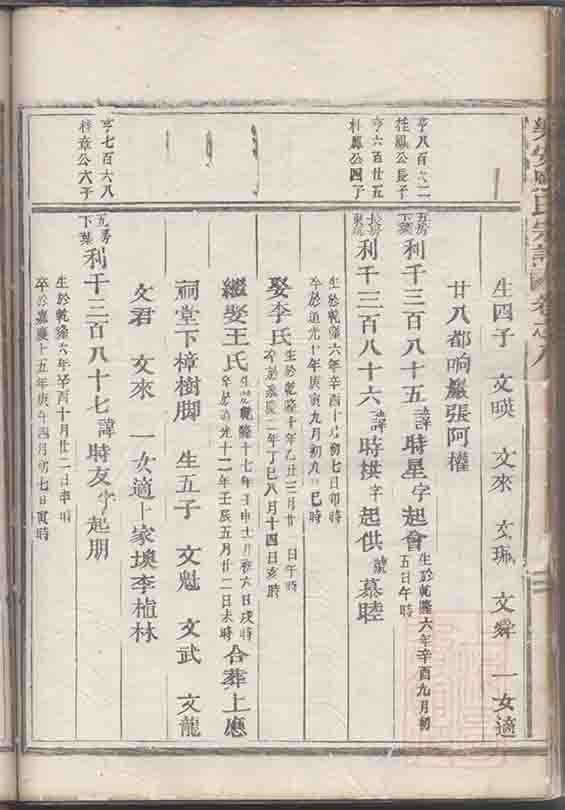 生四子 文暎 文來 文珮 文舜 一女適
廿八都响巖張阿權
亨八百六二
桂鳳公長子
五房
下葉
利千三百八十五諱時星字起會
生於乾隆六年辛酉九月初
五日午時
亨六百廿五
桂鳳公四子
長房
利千三百八十六諱時栱字起供號慕睦
生於乾隆六年辛酉十月初七日卯時
卒於道光十年庚寅九月初九日巳時
娶李氏
生於乾隆十年乙丑三月廿 日午時
卒於嘉慶二年丁巳八月十四日亥時
繼娶王氏
生於乾隆十七年壬申十一月初六日戌時
卒於道光十二年壬辰五月廿二日未時
合葬上應
祠堂下樟樹脚 生五子 文魁 文武 文龍
文君 文來 一女適卜家墺李楂林
亨七百六八
桂章公六子
五房
下葉
利千三百八十七諱時友字起朋
生於乾隆六年辛酉十月廿二日申時
卒於嘉慶十五年庚午四月初七日寅時